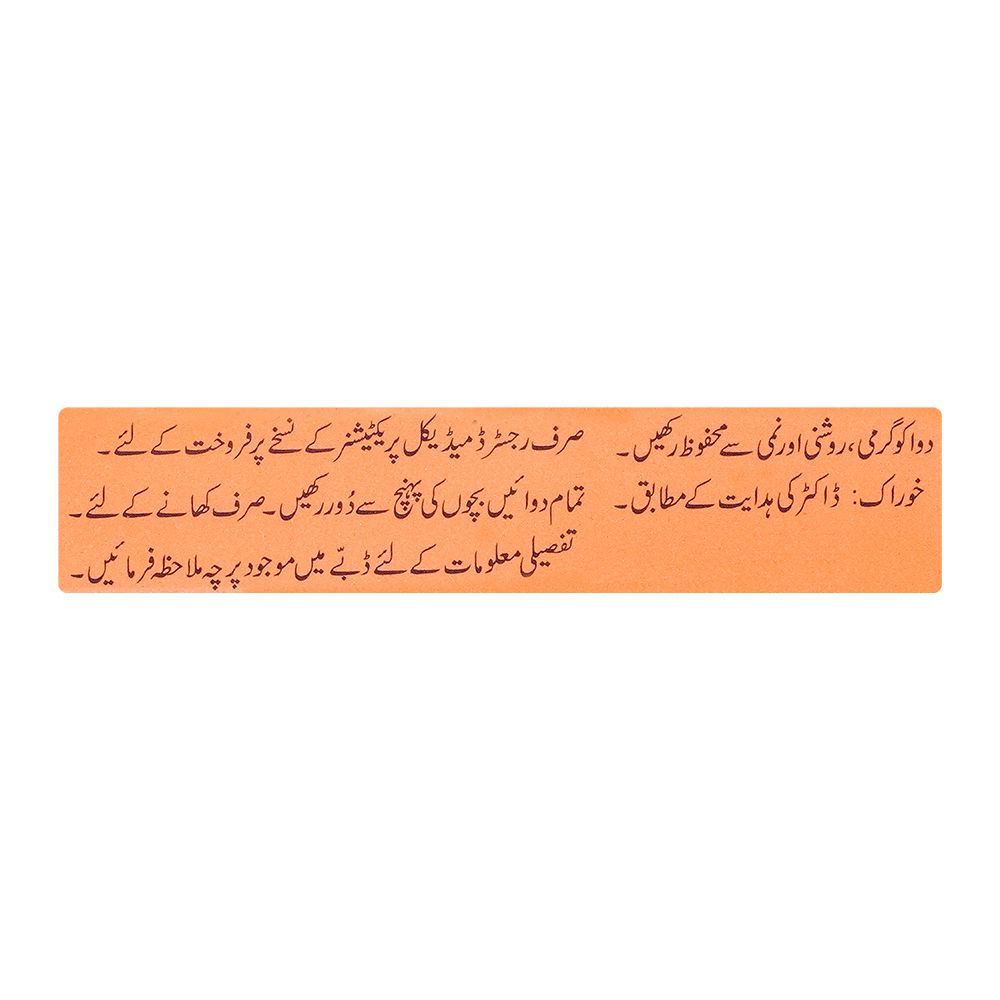 دوا کو گرمی، روشنی اور نمی سے محفوظ رکھیں۔
خوراک: ڈاکٹر کی ہدایت کے مطابق۔
صرف رجسٹرڈ میڈیکل پریکٹیشنر کے نسخے پر فروخت کے لئے۔
تمام دوائیں بچوں کی پہنچ سے دُور رکھیں۔ صرف کھانے کے لئے۔
تفصیلی معلومات کے لئے ڈبّے میں موجود پرچہ ملاحظہ فرمائیں۔